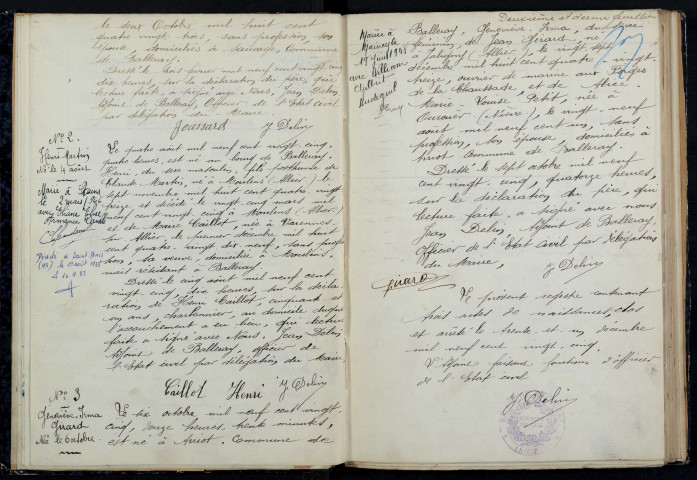 le deux Octobre mil huit cent
quatre vingt trois, sans profession, son
épouse domiciliés à Sauvage, Commune
de Balleray.
Dressé le trois février mil neuf cent vingt cinq
dix heures, sur la déclaration du père, qui
lecture faite, a signé avec Nous, Jean Delin
Adjoint de Balleray, Officier de l'Etat civil
par délégation du Maire.
Joussard J Delin
N° 2
Henri Martin
Né le 4 août
Marié à
le 2
avec
Décédé à Saint Denis
Le quatre août mil neuf cent vingt cinq,
quatre heures, est né au bourg de Balleray,
Henri, du sexe masculin, fils posthume de
Claude Martin, né à Moulins (Allier) le
sept novembre mil huit cent quatre vingt
seize et décédé le vingt cinq mars mil
neuf cent vingt cinq à Moulins (Allier)
et de Marie Caillot, née à Varennes
sur Allier, le premier décembre mil huit
cent quatre vingt dix neuf, sans profes
sion, sa veuve, domiciliée à Moulins,
mais résidant à Balleray.
Dressé le cinq août mil neuf cent
vingt cinq, dix heures, sur la décla
ration de Henri Caillot, cinquante et
un ans, charbonnier, au domicile duquel
l'accouchement a eu lieu, qui lecture
faite a signé avec Nous, Jean Delin
Adjoint de Balleray, officier de
l'Etat civil par délégation du Maire
Caillot Henri J Delin
N° 3
Geneviève, Irma
Girard
Née le 6 octobre
Le six octobre, mil neuf cent vingt
cinq, onze heures, trente minutes,
est né à Auriot, Commune de
Deuxième et dernier feuillet
Mariée à
le 19 Juillet 1945
avec William
Balleray, Geneviève, Irma, du sexe
féminin, de Jean Girard né
à Jaligny (Allier), le vingt sept
décembre mil huit cent quatre vingt
treize, ouvrier de marine aux Forges
de la Chaussade, et de Alice
Marie Louise Petit, née à
Ourouer (Nièvre), le vingt neuf
août mil neuf cent un, sans
profession, son épouse domiciliés à
Auriot Commune de Balleray.
Dressé le sept octobre mil neuf
cent vingt cinq, quatorze heures,
sur la déclaration du père, qui
lecture faite a signé avec nous
Jean Delin, Adjoint de Balleray,
Officier de l'Etat civil par délégation
du Maire, J Delin
Girard
Le présent registre contenant
trois actes de naissances, clos
et arrêté le trente et un décembre
mil neuf cent vingt cinq.
L'Adjoint faisant fonctions d'officier
de l'Etat civil
J Delin